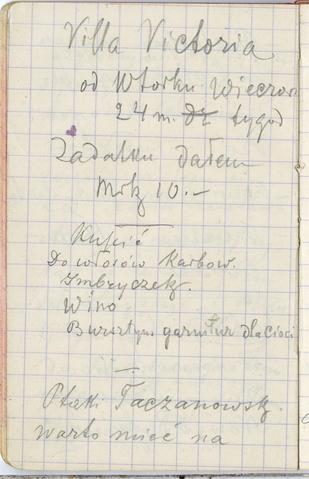 Villa Victoria
od Wtorku wieczor
24 m. dz tygod
Zadatku dałem
Mrk 10.—
Kupić
Do włosów Karbow.
Imbryczek.
Wino
Bursztyn garnitur dla cioci
Ptaki Taczanowsk.
warto mieć na